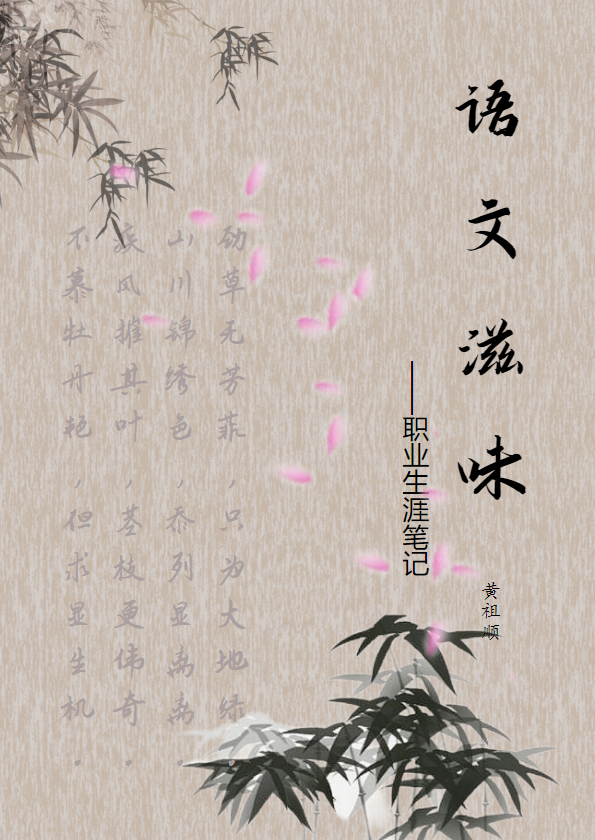 语文滋味
——职业生涯笔记
黄祖顺
劲草无芳菲，只为大地绿.
山川锦绣色，忝列显离离.
疾风摧其叶，茎枝更伟奇.
不慕牡丹艳，但求显生机.